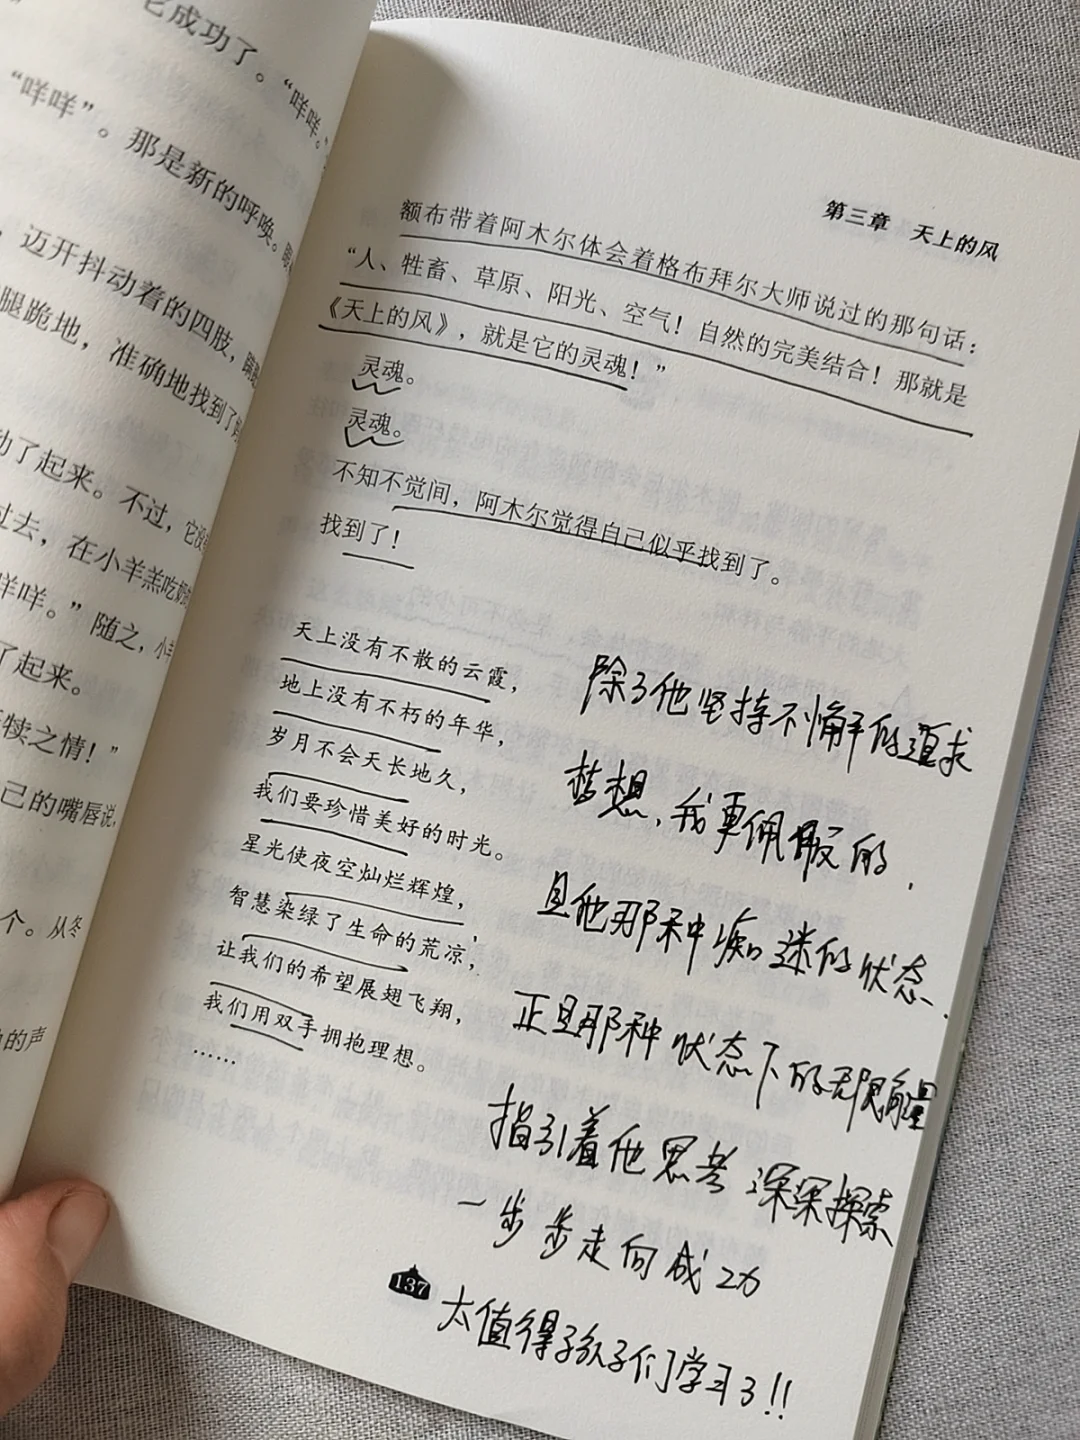 它成功了。“咩咩。”
“咩咩”。那是新的呼唤。
，迈开抖动着的四肢，
腿跪地，准确地找到了
动了起来。不过，它没
过去，在小羊羔吃奶
咩咩。”随之，小羊
了起来。
犊之情！”
己的嘴唇说，
个。从冬
的声
第三章 天上的风
额布带着阿木尔体会着格布拜尔大师说过的那句话：
“人、牲畜、草原、阳光、空气！自然的完美结合！那就是
《天上的风》，就是它的灵魂！”
灵魂。
灵魂。
不知不觉间，阿木尔觉得自己似乎找到了。
找到了！
天上没有不散的云霞，
地上没有不朽的年华，
岁月不会天长地久，
我们要珍惜美好的时光。
星光使夜空灿烂辉煌，
智慧染绿了生命的荒凉，
让我们的希望展翅飞翔，
我们用双手拥抱理想。
……
除了他坚持不懈的追求
梦想，我更佩服的，
是他那种痴迷的状态、
正是那种状态下的无限能量
指引着他思考 深深探索
一步步走向成功
太值得孩子们学习了!!
137